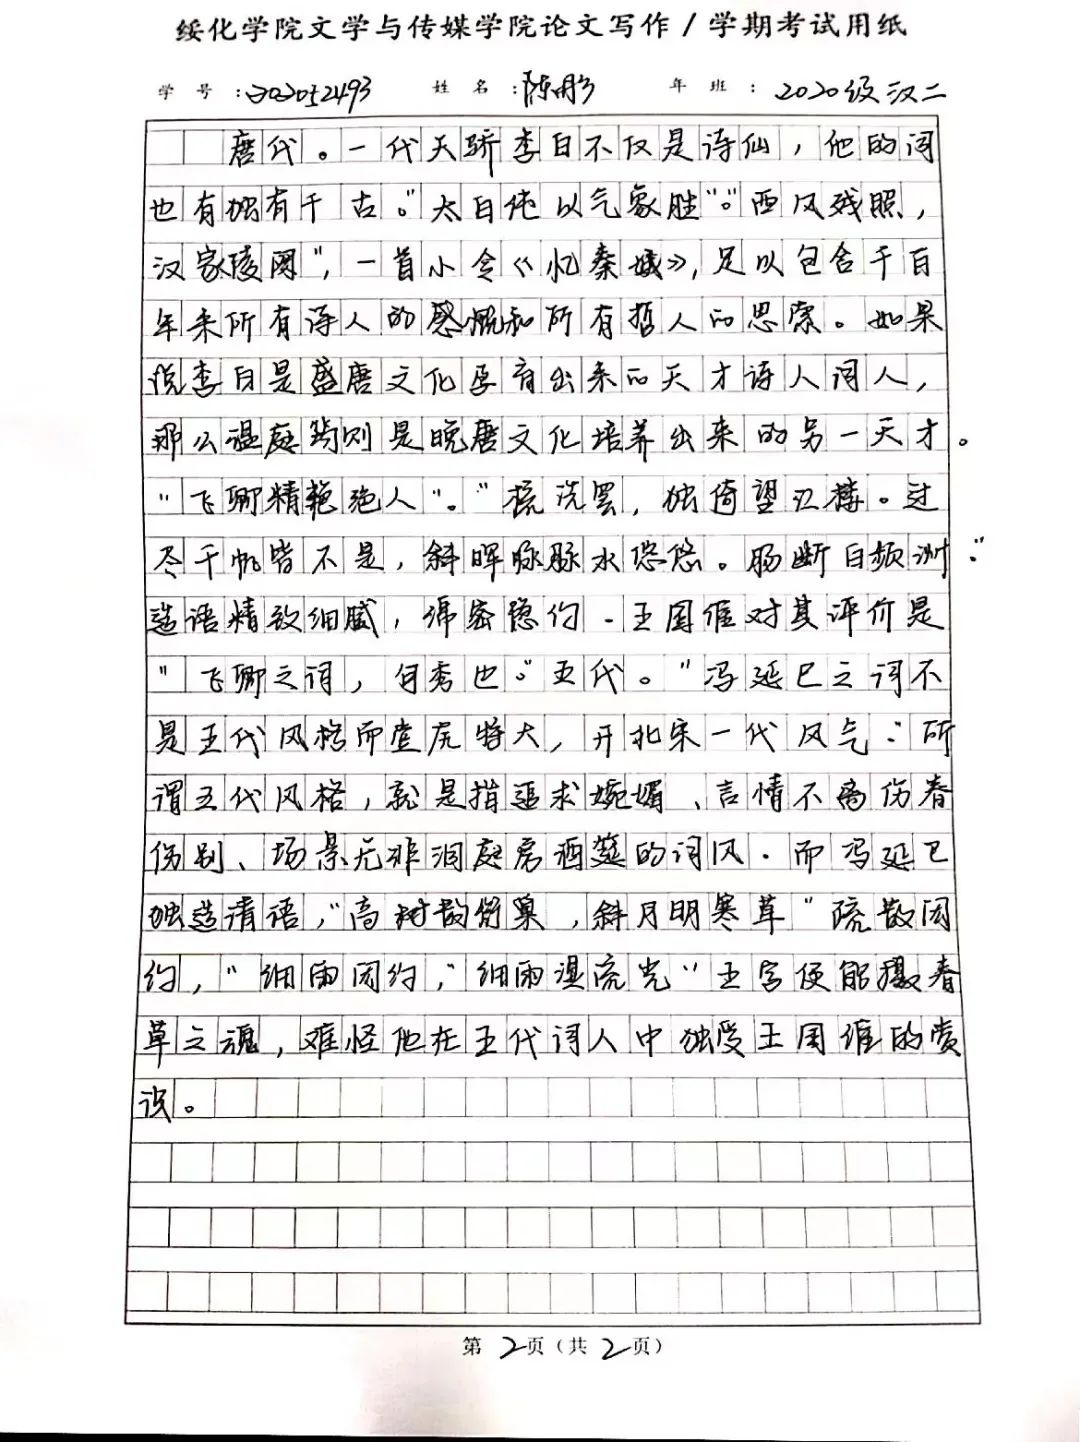 绥化学院文学与传媒学院论文写作/学期考试用纸
学号：202052493 姓名：陈彤 年班：2020级汉二
唐代。一代天骄李白不仅是诗仙，他的词
也有独有千古。"太白纯以气象胜"。"西风残照，
汉家陵阙"，一首小令《忆秦娥》，足以包含千百
年来所有诗人的感慨和所有哲人的思索。如果
说李白是盛唐文化孕育出来的天才诗人词人，
那么温庭筠则是晚唐文化培养出来的另一天才。
"飞卿精艳绝人"。"梳洗罢，独倚望江楼。过
尽千帆皆不是，斜晖脉脉水悠悠。肠断白频洲。"
造语精致细腻，绵密隐约．王国维对其评价是
"飞卿之词，句秀也。"五代。"冯延巳之词不
是五代风格而堂庑特大，开北宋一代风气：所
谓五代风格，就是指追求婉媚、言情不离伤春
伤别、场景无非洞庭房酒筵的词风．而冯延巳
独造清语，"高树鹊衔巢，斜月明寒草"疏散闲
约，"细雨闲约，"细雨湿流光"五字便能摄春
草之魂，难怪他在五代词人中独受王国维的赏
识。
第2页（共2页）